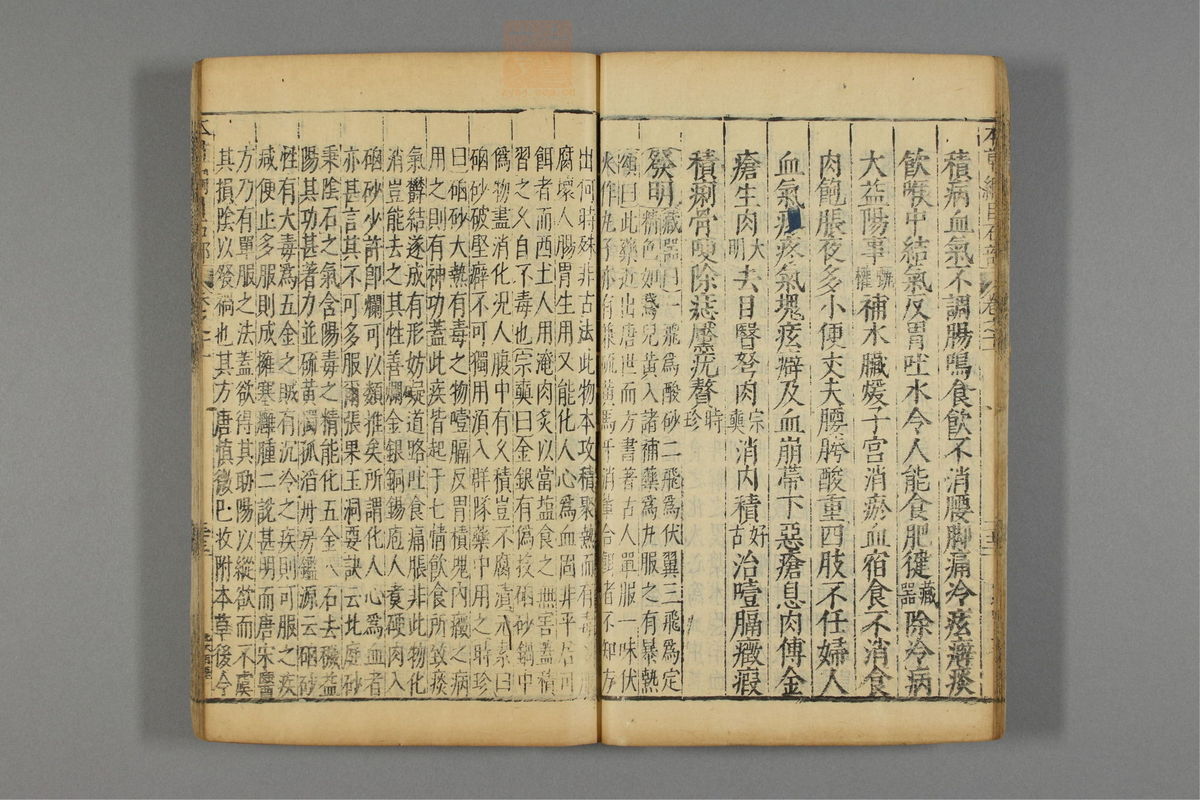 積病血氣不調腸鳴食飲不消腰脚痛冷痃癖痰
飲喉中結氣反胃吐水令人能食肥健藏器除冷病
大益陽事甄權補水臟煖子宫消瘀血宿食不消食
肉飽脹夜多小便丈夫腰胯酸重四肢不任婦人
血氣疼氣塊痃癖及血崩帶下惡瘡息肉傅金
瘡生肉大明去目翳弩肉宗奭消内積好古治噎膈癥瘕
積痢骨哽除痣黶疣贅時珍
發明藏器曰一飛爲酸砂二飛爲伏翼三飛爲定
精色如鵞兒黄入諸補藥爲丸服之有暴熱
頌曰此藥近出唐世而方書著古人單服一味伏
火作丸子亦有兼硫黄馬牙消軰合餌者不知方
出何時殊非古法此物本攻積聚熱而有毒
腐壞人腸胃生用又能化人心爲血固非平居可
餌者而西土人用淹肉炙以當盐食之無害蓋積
習之久自不毒也宗奭曰金銀有偽投硇砂鍋中
偽物盡消化况人腹中有久積豈不腐潰元素曰
硇砂破堅癖不可獨用湏入群隊藥中用之時珍
曰硇砂大熱有毒之物噎膈反胃積塊内癥之病
用之則有神功蓋此疾皆起于七情飲食所致痰
氣鬱結遂成有形妨碍道路吐食痛脹非此物化
消豈能去之其性善爛金銀銅錫庖人煑硬肉入
硇砂少許卽爛可以類推矣所謂化人心爲血者
亦甚言其不可多服爾張果玉洞要訣云北庭砂
秉陰石之氣含陽毒之精能化五金八石去穢益
陽其功甚著力並硫黄獨孤滔丹房鑑源云硇砂
性有大毒爲五金之賊有沉冷之疾則可服之疾
减便止多服則成擁塞癰腫二說甚明而唐宋醫
方乃有單服之法蓋欲得其助陽以縱欲而不虞
其損陰以發禍也其方唐愼微巳收附本草後今